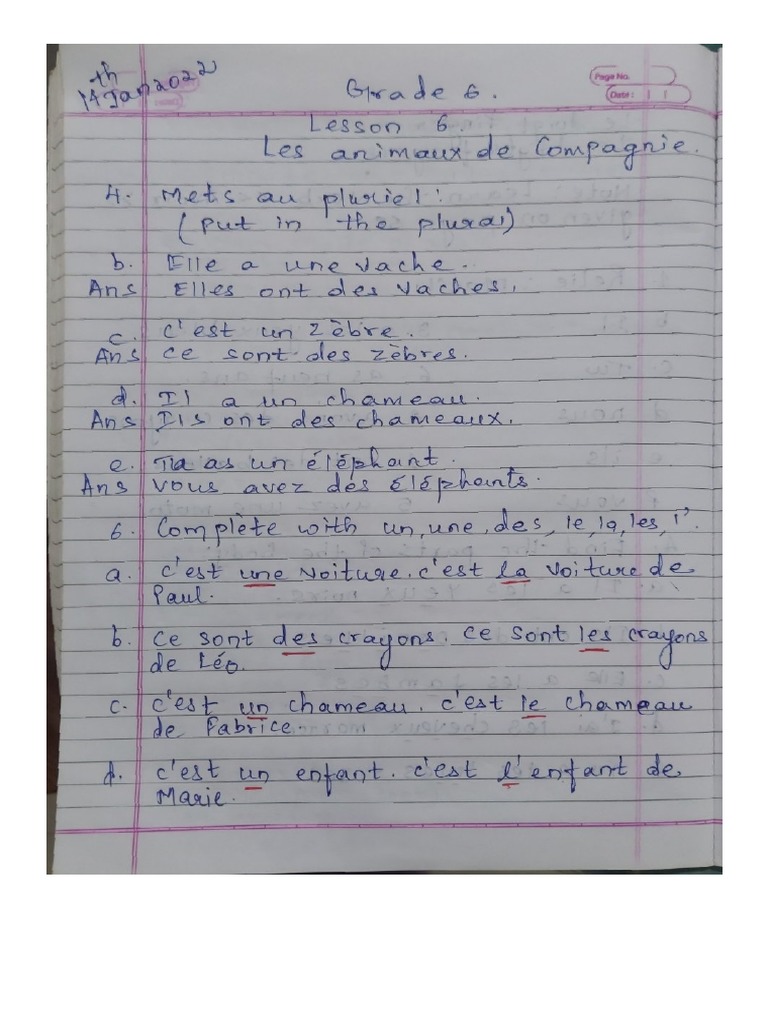 14th Jan 2022
Grade 6.
Page No.
Date:
Lesson 6.
Les animaux de Compagnie.
4. Mets au pluriel:
(put in the plural)
b. Elle a une vache.
Ans Elles ont des vaches.
c. c'est un zèbre.
Ans ce sont des zèbres.
d. Il a un chameau.
Ans Ils ont des chameaux.
e. Tu as un éléphant.
Ans vous avez des éléphants.
6. Complète with un, une, des, le, la, les, l'.
a. c'est une voiture. c'est la voiture de
Paul.
b. ce sont des crayons. ce sont les crayons
de Léo.
c. c'est un chameau. c'est le chameau
de Fabrice.
d. c'est un enfant. c'est l'enfant de
Marie.